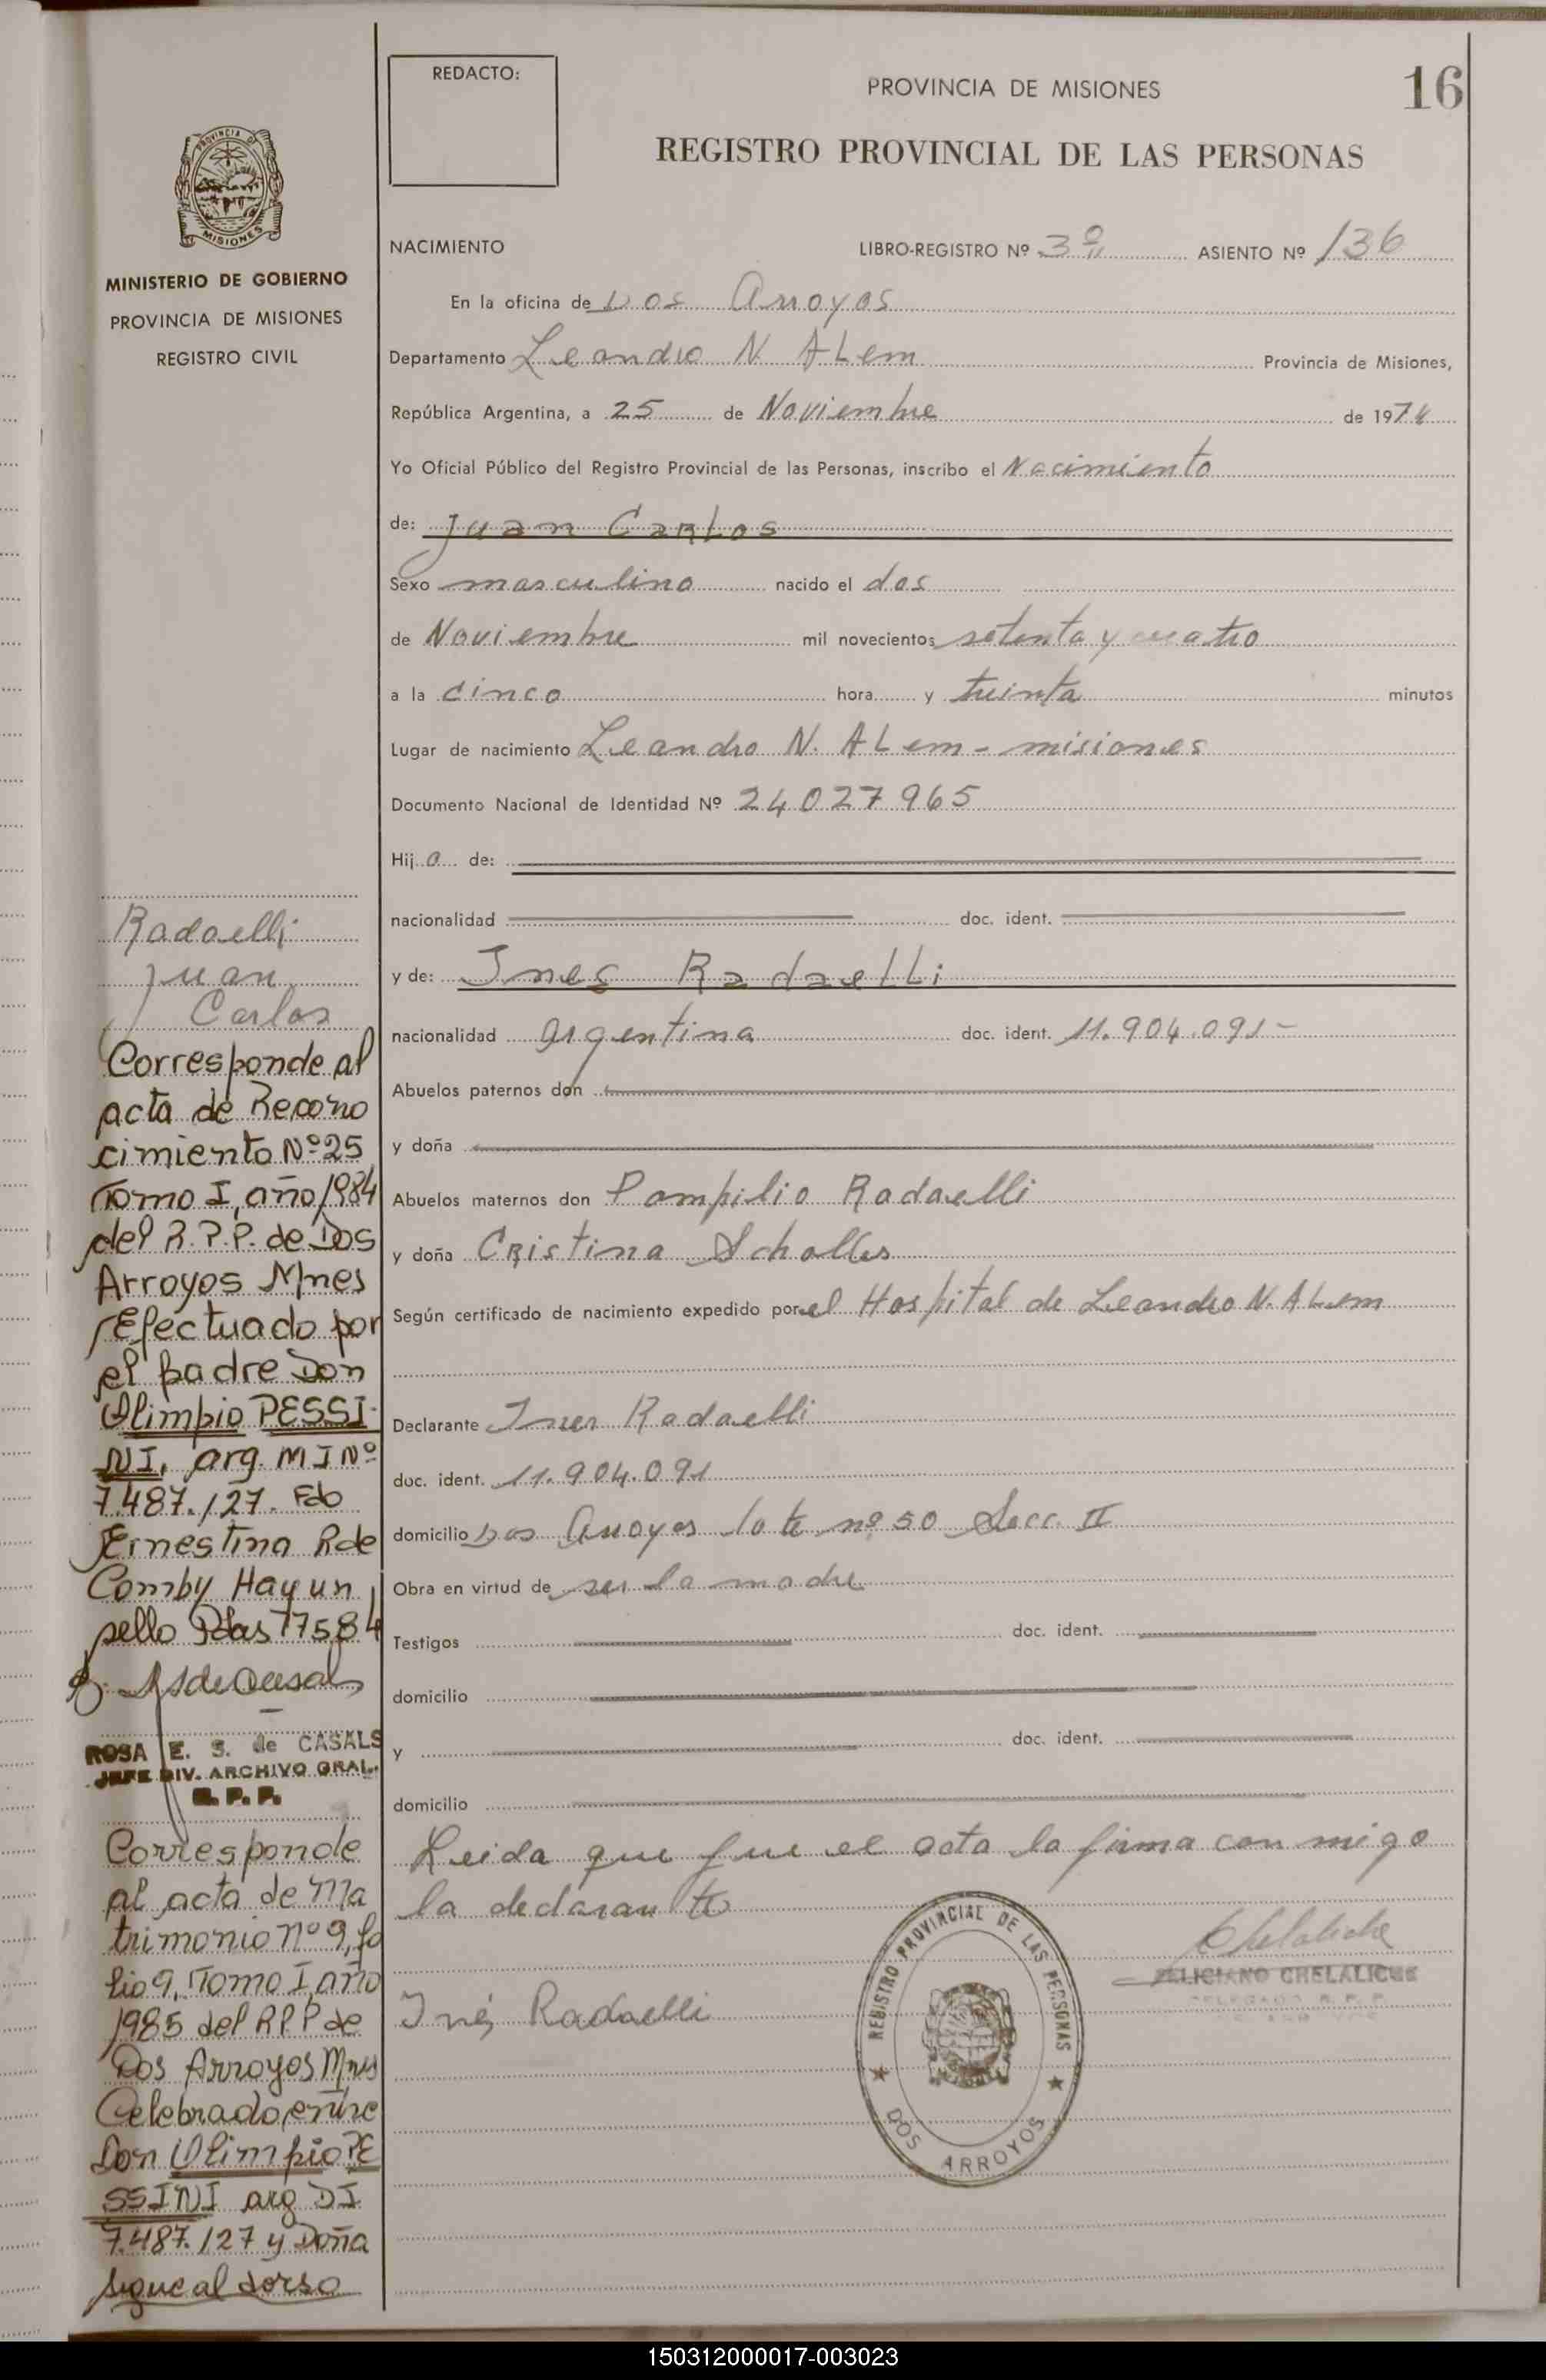 REDACTO:
PROVINCIA DE MISIONES
16
REGISTRO PROVINCIAL DE LAS PERSONAS
PROVINCIA DE
MISIONES
MINISTERIO DE GOBIERNO
PROVINCIA DE MISIONES
REGISTRO CIVIL
NACIMIENTO LIBRO-REGISTRO Nº 3º ASIENTO Nº 136
En la oficina de Dos Arroyos
Departamento Leandro N. ALem Provincia de Misiones,
República Argentina, a 25 de Noviembre de 1974
Yo Oficial Público del Registro Provincial de las Personas, inscribo el Nacimiento
de: Juan Carlos
Sexo masculino nacido el dos
de Noviembre mil novecientos setenta y cuatro
a la cinco hora y treinta minutos
Lugar de nacimiento Leandro N. ALem - misiones
Documento Nacional de Identidad Nº 24027965
Hij o de:
nacionalidad doc. ident.
y de: Ines Radaelli
nacionalidad argentina doc. ident. 11.904.091-
Abuelos paternos don
y doña
Abuelos maternos don Pompilio Radaelli
y doña Cristina Scholles
Según certificado de nacimiento expedido por el Hospital de Leandro N. ALem
Declarante Ines Radaelli
doc. ident. 11.904.091
domicilio Dos Arroyos lote nº 50 Secc. II
Obra en virtud de ser la madre
Testigos doc. ident.
domicilio
y doc. ident.
domicilio
Leida que fue el acta la firma con migo
la declarante
Inés Radaelli
REGISTRO PROVINCIAL DE LAS PERSONAS
DOS ARROYOS
FELICIANO CHELALICHE
DELEGADO R. P. P.
Radaelli
Juan
Carlos
Corresponde al
acta de Recono
cimiento Nº 25
Tomo I, año 1984
del R.P.P. de Dos
Arroyos Mnes
Efectuado por
el padre Don
Olimpio PESSI-
NI, arg. MI Nº
7.487.127. Fdo
Ernestina R de
Comby Hay un
sello Pdas 77584
ROSA E. S. de CASALS
JEFE DIV. ARCHIVO GRAL.
R. P. P.
Corresponde
al acta de Ma
trimonio nº 9, fo
lio 9, Tomo I, año
1985 del RPP de
Dos Arroyos Mnes
Celebrado entre
Don Olimpio PE
SSINI arg DI
7.487.127 y Doña
sigue al dorso
150312000017-003023